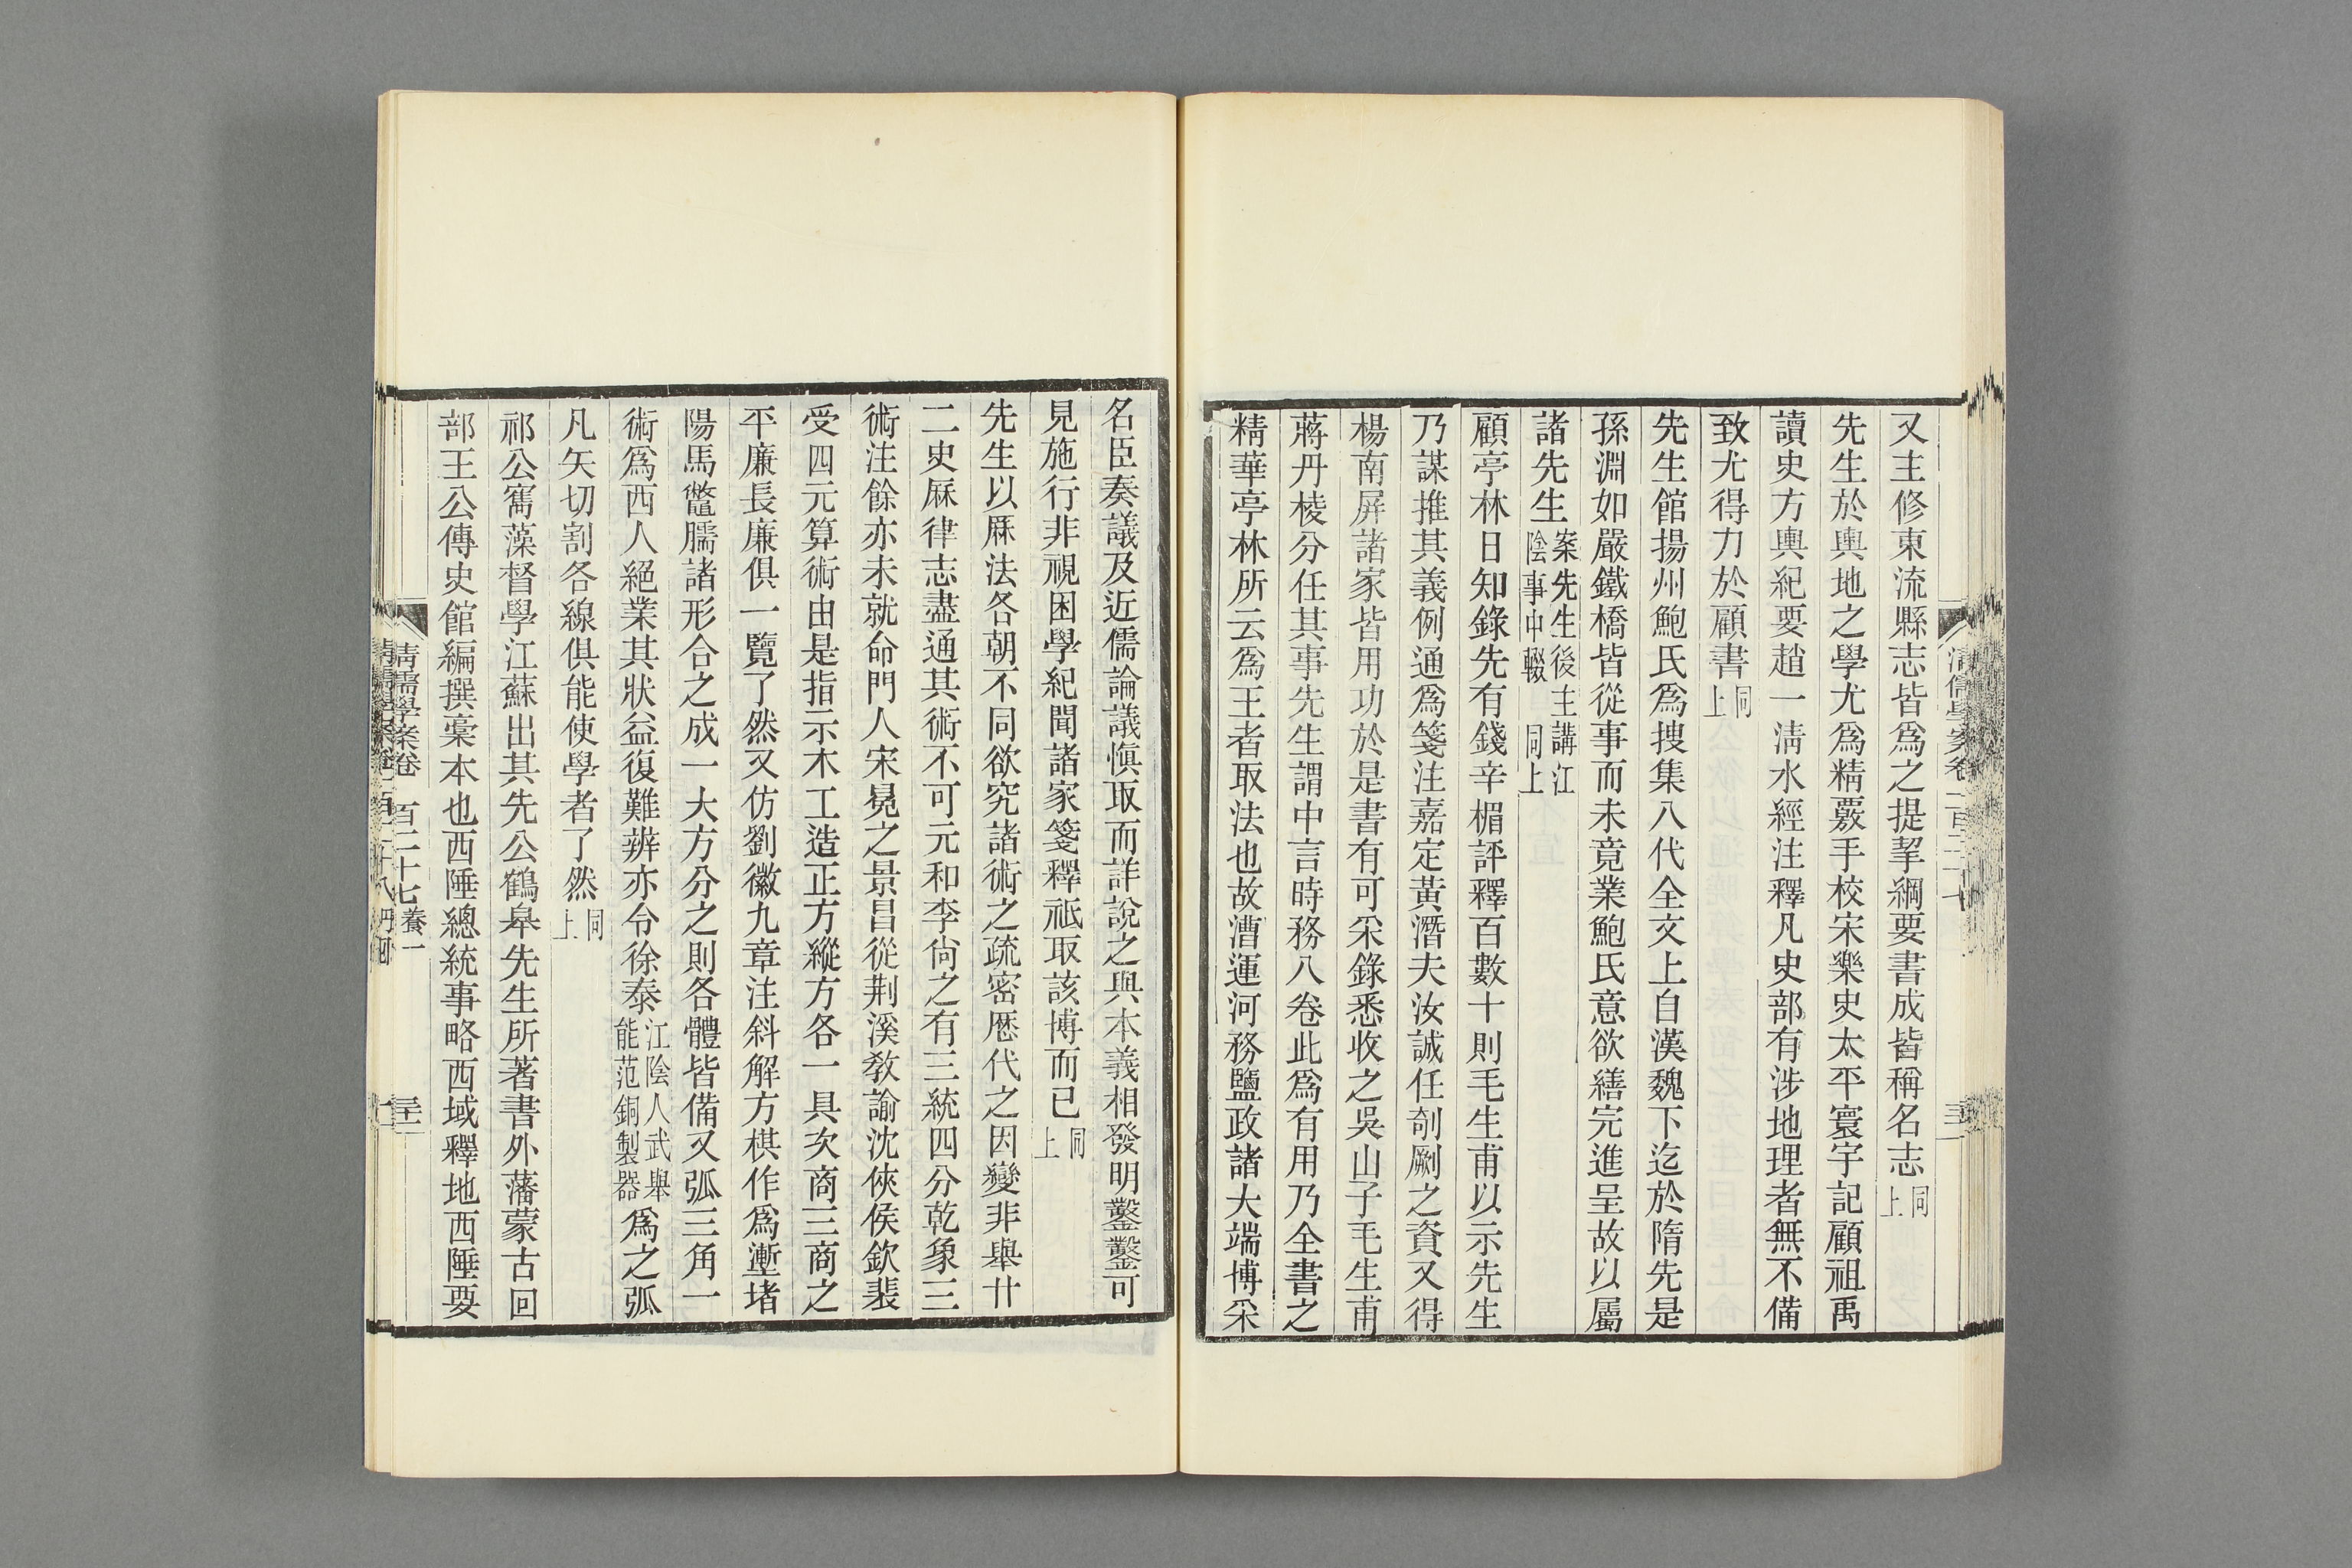 又主修東流縣志皆爲之提挈綱要書成皆稱名志同上
先生於輿地之學尤爲精覈手校宋樂史太平寰宇記顧祖禹
讀史方輿紀要趙一淸水經注釋凡史部有涉地理者無不備
致尤得力於顧書同上
先生館揚州鮑氏爲搜集八代全文上自漢魏下迄於隋先是
孫淵如嚴鐵橋皆從事而未竟業鮑氏意欲繕完進呈故以屬
諸先生案先生後主講江陰事中輟 同上
顧亭林日知錄先有錢辛楣評釋百數十則毛生甫以示先生
乃謀推其義例通爲箋注嘉定黃潛夫汝誠任剞劂之資又得
楊南屏諸家皆用功於是書有可采錄悉收之吳山子毛生甫
蔣丹棱分任其事先生謂中言時務八卷此爲有用乃全書之
精華亭林所云爲王者取法也故漕運河務鹽政諸大端博采
名臣奏議及近儒論議愼取而詳說之與本義相發明鑿鑿可
見施行非視困學紀聞諸家箋釋祗取該博而已同上
先生以厤法各朝不同欲究諸術之疏密厯代之因變非舉廿
二史厤律志盡通其術不可元和李尙之有三統四分乾象三
術注餘亦未就命門人宋冕之景昌從荆溪敎諭沈俠侯欽裴
受四元算術由是指示木工造正方縱方各一具次商三商之
平廉長廉俱一覽了然又仿劉徽九章注斜解方棋作爲壍堵
陽馬鼈臑諸形合之成一大方分之則各體皆備又弧三角一
術爲西人絕業其狀益復難辨亦令徐泰江陰人武舉能范銅製器爲之弧
凡矢切割各線俱能使學者了然同上
祁公寯藻督學江蘇出其先公鶴皋先生所著書外藩蒙古回
部王公傳史館編撰稾本也西陲總統事略西域釋地西陲要
淸儒學案卷一百二十七 養一